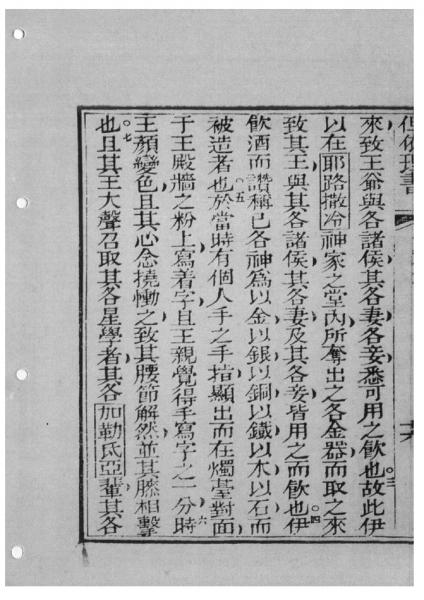 但依理書 十六
來致王爺與各諸侯其各妻各妾悉可用之飲也故此伊三
以在耶路撒冷神家之堂內所奪出之各金器而取之來
致其王與其各諸侯其各妻及其各妾皆用之而飲也伊四
飲酒而讚稱已各神為以金以銀以銅以鐵以木以石而
被造者也於五當時有個人手之手指顯出而在燭臺對面
于王殿牆之粉上寫着字且王親覺得手寫字之一分時六
王顏變色且其心念撓慟之致其腰節解然並其膝相擊
也七且其王大聲召取其各星學者其各加勒氏亞輩其各